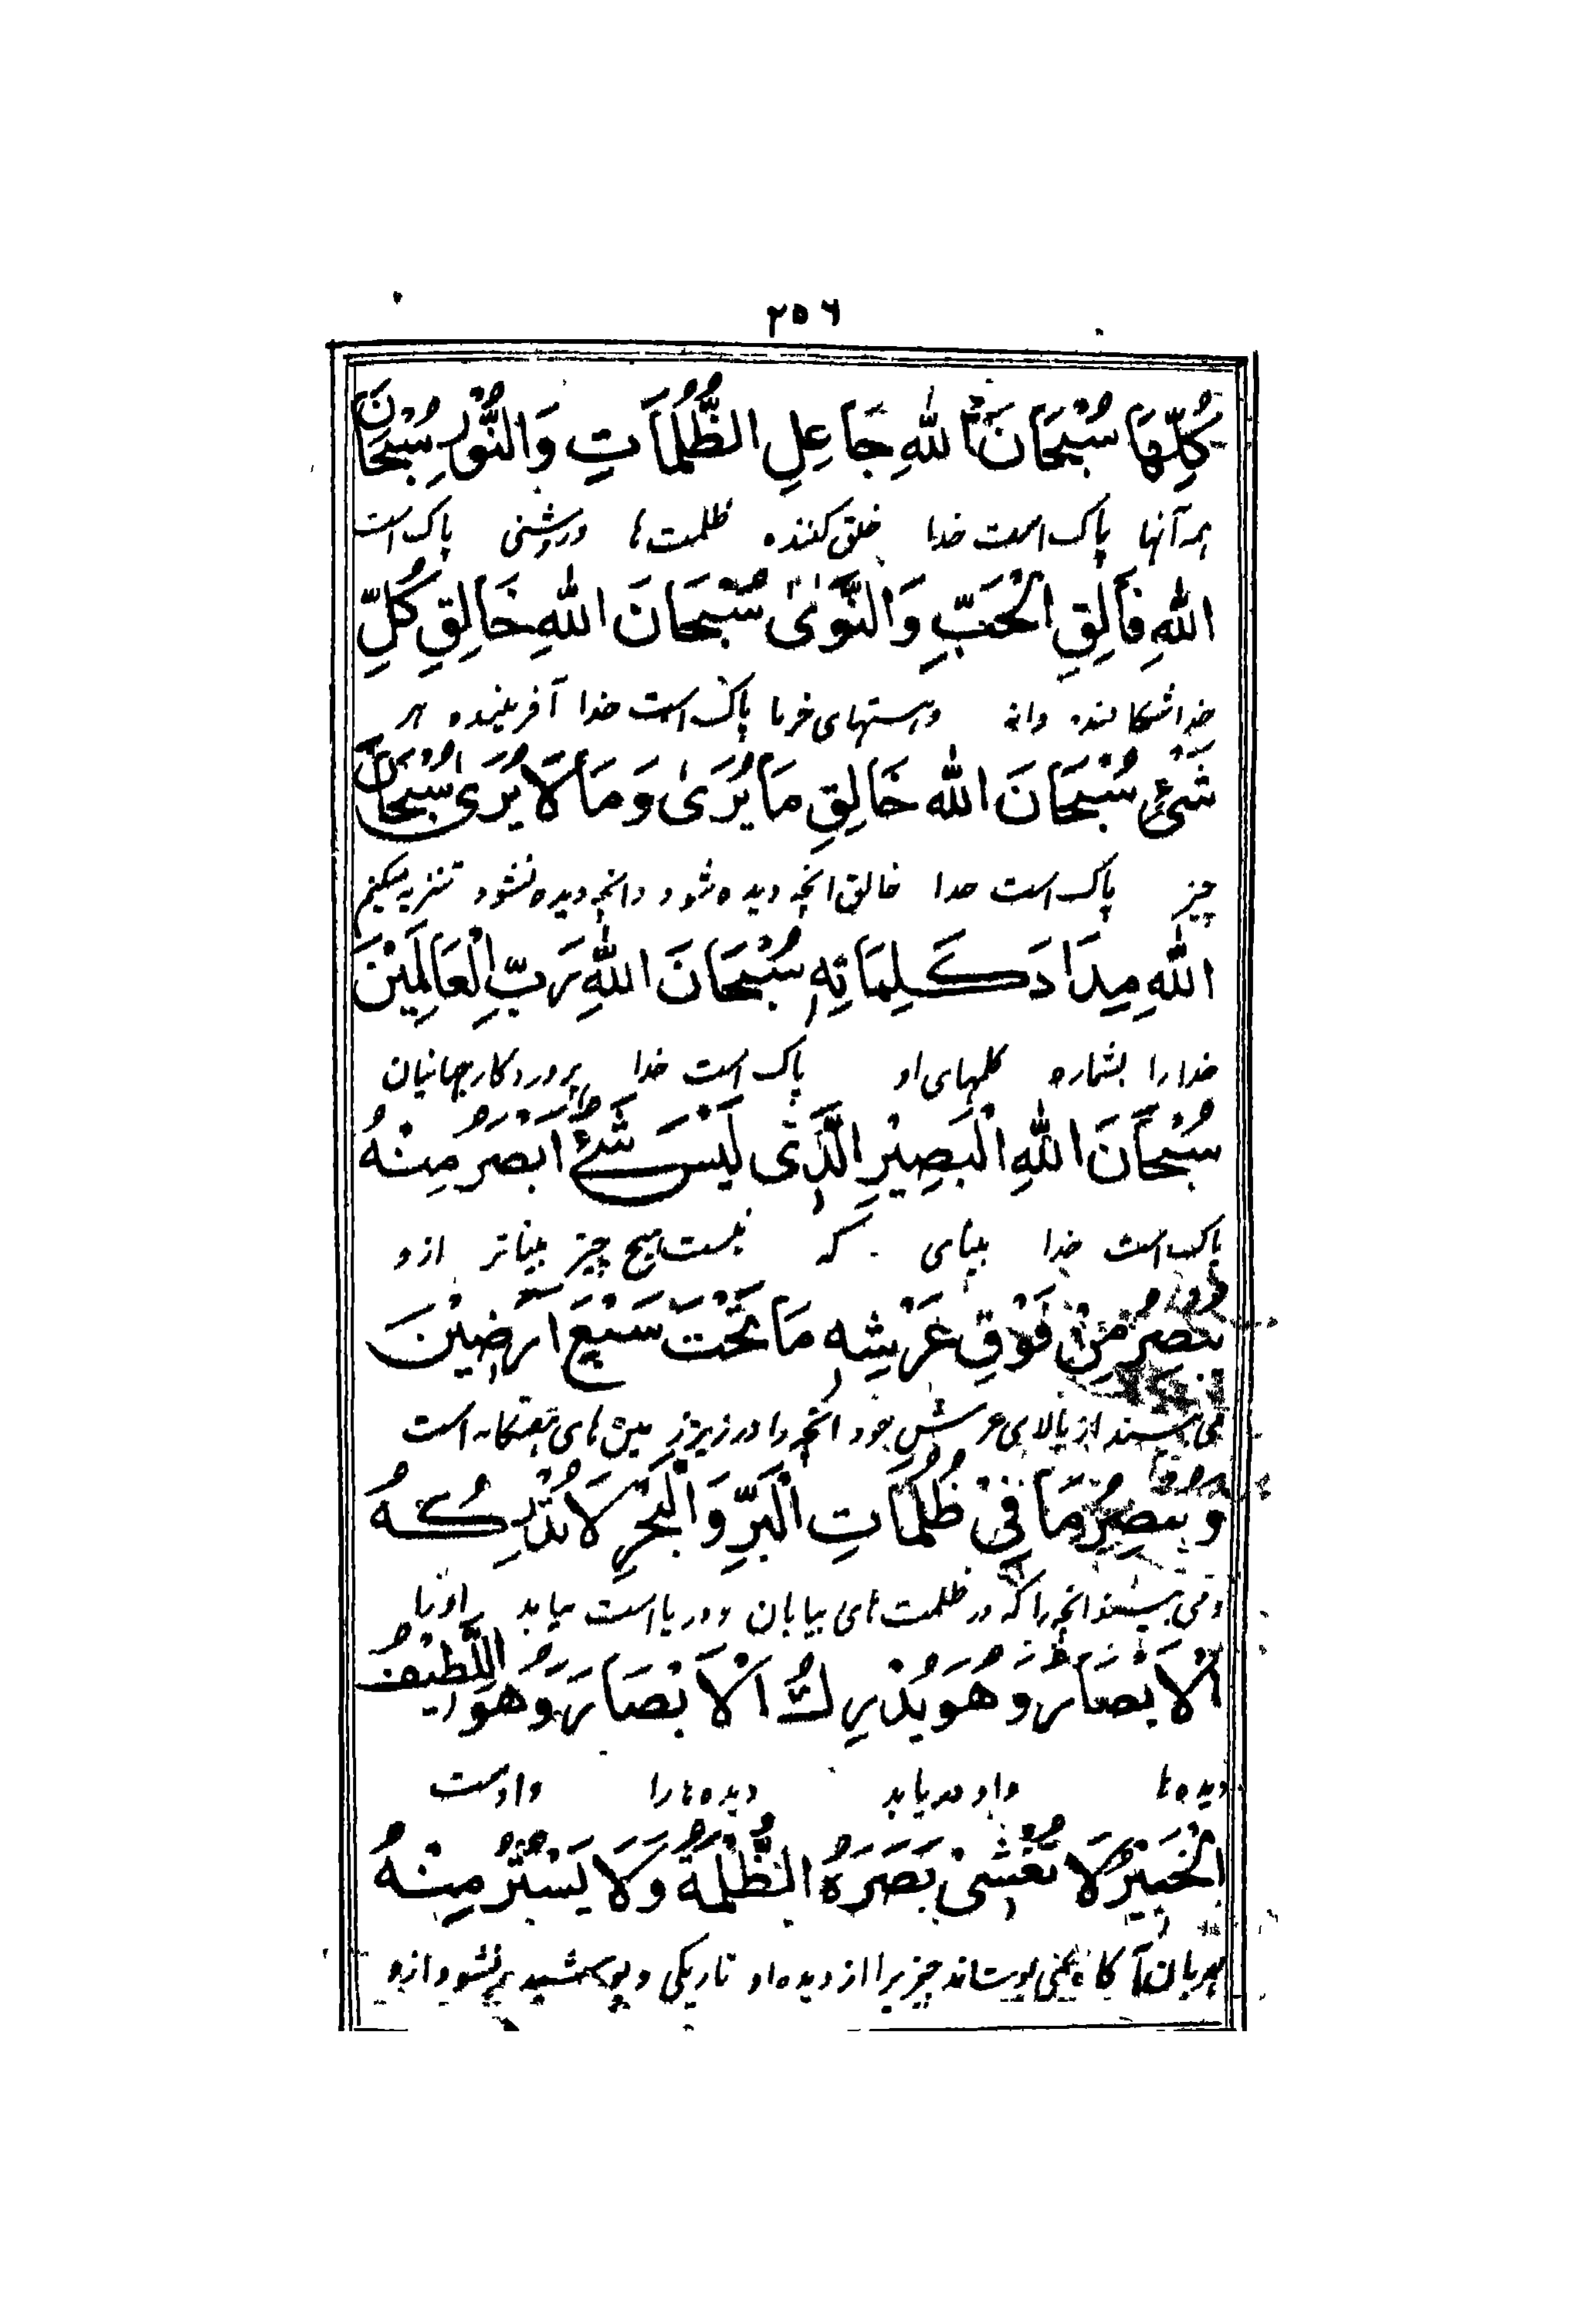 ۲۵۶
كُلِّهَا سُبْحَانَ اللهِ جَاعِلِ الظُّلُمَاتِ وَالنُّوْرِ سُبْحَانَ
همه آنها پاک است خدا خلق کننده ظلمت ها و روشنی پاک است
اللهِ فَالِقِ الْحَبِّ وَالنَّوٰى سُبْحَانَ اللهِ خَالِقِ كُلِّ
خدا شکافنده دانه و هستهای خرما پاک است خدا آفریننده هر
شَيْءٍ سُبْحَانَ الله خَالِقِ مَا يُرَىٰ وَمَا لَا يُرَىٰ سُبْحَانَ
چیز پاک است خدا خالق انچه دیده شود و انچه دیده نشود تنزیه میکنم
اللهِ مِدَادَ كَلِمَاتِهِ سُبْحَانَ اللهِ رَبِّ الْعَالَمِيْنَ
خدا را بشماره کلمهای او پاک است خدا پروردکار جهانیان
سُبْحَانَ اللهِ الْبَصِيْرِ الَّذِى لَيْسَ شَيْءٌ اَبْصَرَ مِنْهُ
پاک است خدا بینای که نیست هیچ چیز بیناتر ازو
يُبْصِرُ مِنْ فَوْقِ عَرْشِهِ مَا تَحْتَ سَبْعِ اَرَضِيْنَ
می بیند از بالای عرش خود انچه را در زیر زمین های هفتکانه است
وَيُبْصِرُ مَا فِيْ ظُلُمَاتِ الْبَرِّ وَالْبَحْرِ لَا تُدْرِكُهُ
و می بیند انچه را که در ظلمت های بیابان و دریا است نیابد او را
الْاَبْصَارُ وَهُوَ يُدْرِكُ الْاَبْصَارَ وَهُوَ اللَّطِيْفُ
دیده ها و او دریابد دیده ها را و اوست
الْخَبِيْرُ لَا تُغْشِىْ بَصَرَهُ الظُّلْمَةُ وَلَا يَسْتَتِرُ مِنْهُ
مهربان آکاه نمی پوشاند چیزیرا از دیده او تاریکی و پوشیده نشود ازو